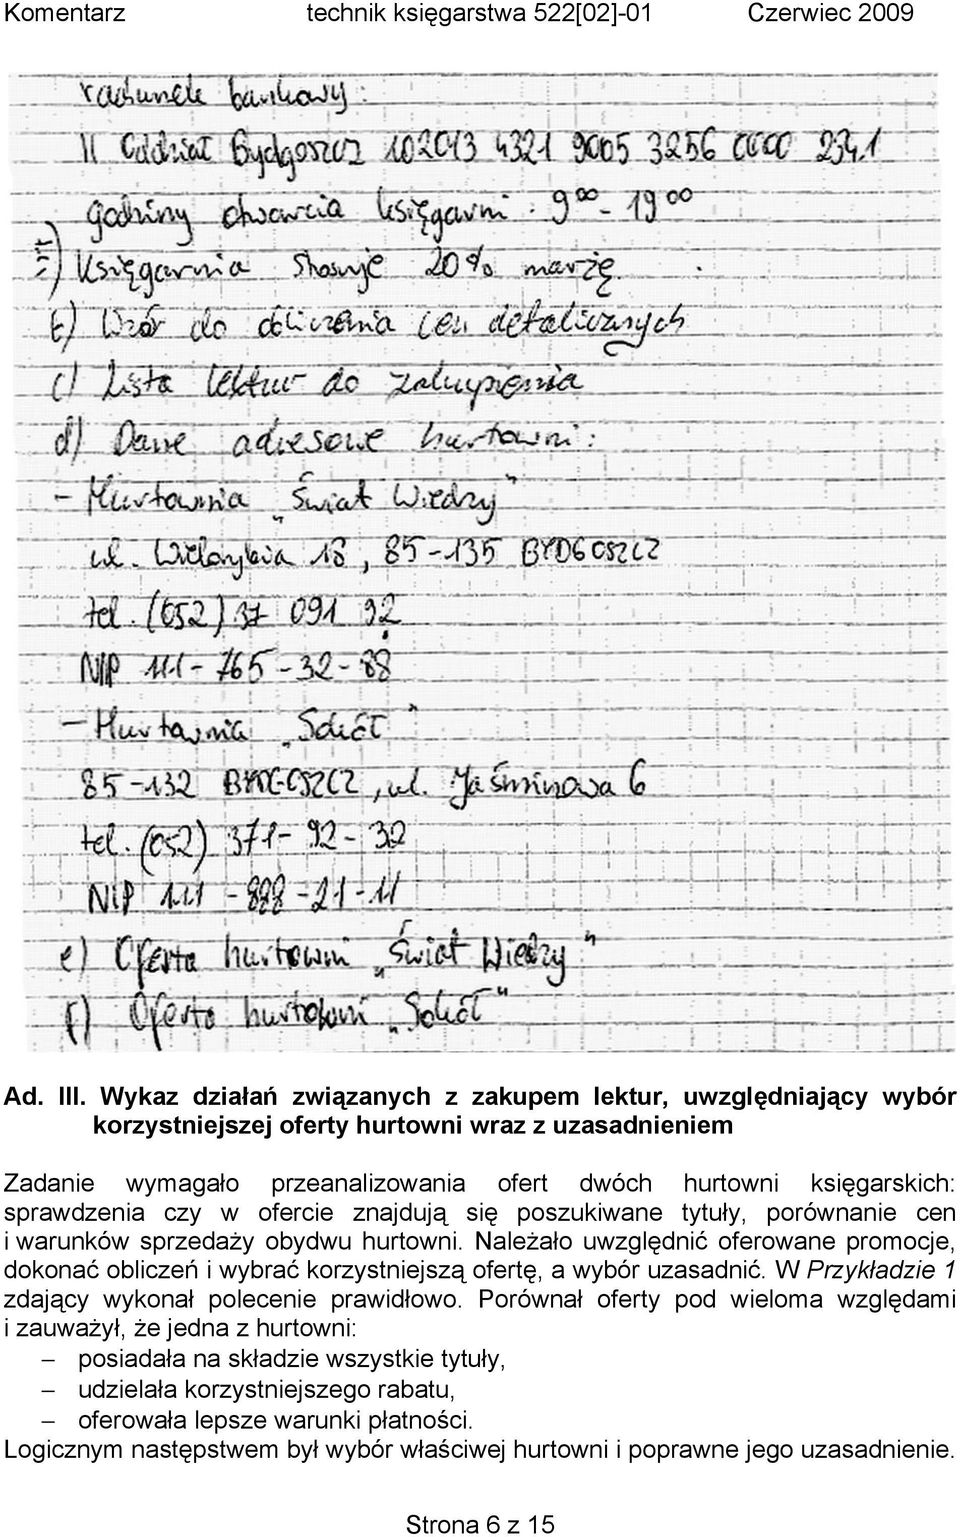 Komentarz technik księgarstwa 522[02]-01 Czerwiec 2009
rachunek bankowy:
II Oddział Bydgoszcz 102013 4321 9005 3256 0000 234.1
godziny otwarcia księgarni: 9⁰⁰ - 19⁰⁰
Księgarnia stosuje 20% marżę.
b) Wzór do obliczenia cen detalicznych
c) Lista lektur do zakupienia
d) Dane adresowe hurtowni:
- Hurtownia „Świat Wiedzy"
ul. Wielorybia 18, 85-135 BYDGOSZCZ
tel. (052) 37 091 92
NIP 111-765-32-88
- Hurtownia „Sokół"
85-132 BYDGOSZCZ, ul. Jaśminowa 6
tel. (052) 371-92-32
NIP 111-888-21-11
e) Oferta hurtowni „Świat Wiedzy"
f) Oferta hurtowni „Sokół"
Ad. III. Wykaz działań związanych z zakupem lektur, uwzględniający wybór
korzystniejszej oferty hurtowni wraz z uzasadnieniem
Zadanie wymagało przeanalizowania ofert dwóch hurtowni księgarskich:
sprawdzenia czy w ofercie znajdują się poszukiwane tytuły, porównanie cen
i warunków sprzedaży obydwu hurtowni. Należało uwzględnić oferowane promocje,
dokonać obliczeń i wybrać korzystniejszą ofertę, a wybór uzasadnić. W Przykładzie 1
zdający wykonał polecenie prawidłowo. Porównał oferty pod wieloma względami
i zauważył, że jedna z hurtowni:
– posiadała na składzie wszystkie tytuły,
– udzielała korzystniejszego rabatu,
– oferowała lepsze warunki płatności.
Logicznym następstwem był wybór właściwej hurtowni i poprawne jego uzasadnienie.
Strona 6 z 15